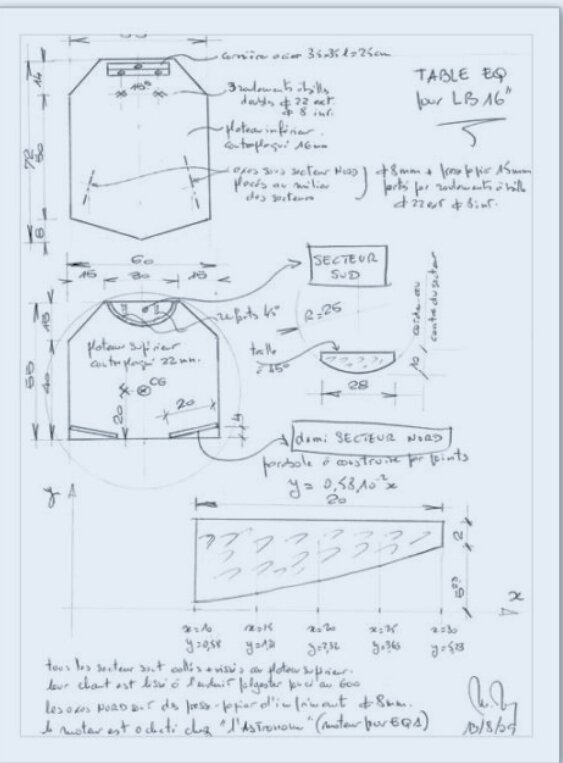 TABLE EQ
pour LB 16"
cornière acier 35x35 l=25cm
3 roulements à billes
doubles ϕ 22 ext.
ϕ 8 int.
plateau inférieur
contreplaqué 16mm
axes sous secteur NORD
placés au milieu
des secteurs
ϕ 8mm + presse papier 15mm
portés par roulements à bille
ϕ 22 ext ϕ 8 int.
14
72
8
60
15 30 15
SECTEUR
SUD
R=26
45°
plateau supérieur
contreplaqué 22mm.
taille
à 45°
corde au
centre du secteur
10
28
CG
20
20
4
demi SECTEUR NORD
parabole à construire par points
y = 0,58.10⁻² x
20
y
2
x
x=10 x=15 x=20 x=25 x=30
y=0,58 y=2,32 y=3,63
tous les secteur sont collés + vissés au plateau supérieur.
leur chant est lissé à l'enduit polyester au 600
les axes NORD ont des presse-papier d'imprimant ϕ 8mm.
le moteur est acheté chez "l'Astronome" (moteur pour EQ1)